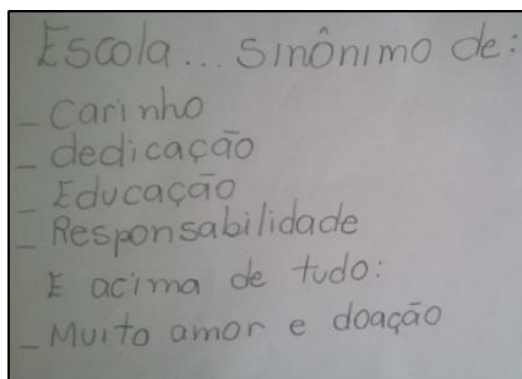 Escola... Sinônimo de:
- Carinho
- dedicação
- Educação
- Responsabilidade
E acima de tudo:
- Muito amor e doação